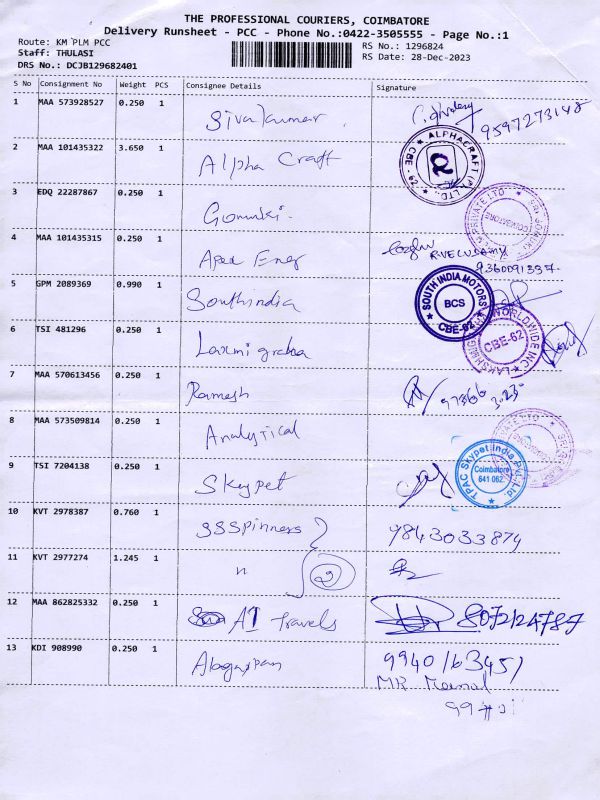 THE PROFESSIONAL COURIERS, COIMBATORE
Delivery Runsheet - PCC - Phone No.:0422-3505555 - Page No.:1
Route: KM PLM PCC
Staff: THULASI
DRS No.: DCJB129682401
RS No.: 1296824
RS Date: 28-Dec-2023
S No Consignment No Weight PCS Consignee Details Signature
1 MAA 573928527 0.250 1 Sivakumar 9597273148
2 MAA 101435322 3.650 1 Alpha Craft
ALPHACRAFT (P) LTD.
3 EDQ 22287867 0.250 1
4 MAA 101435315 0.250 1 Apex Ener R.VELUSAMY
5 GPM 2089369 0.990 1 Southindia
SOUTH INDIA MOTORS
BCS
CBE-62
6 TSI 481296 0.250 1 Laxmi
WORLDWIDE INC
CBE-62
7 MAA 570613456 0.250 1 Ramesh
8 MAA 573509814 0.250 1 Analytical
9 TSI 7204138 0.250 1 Skypet
TPAC Skypet India Pvt. Ltd.
Coimbatore
641 062.
10 KVT 2978387 0.760 1 SSSpinners 9843033874
11 KVT 2977274 1.245 1 " 2
12 MAA 862825332 0.250 1 A1 Travels 8072124787
13 KDI 908990 0.250 1 9940163451
MR